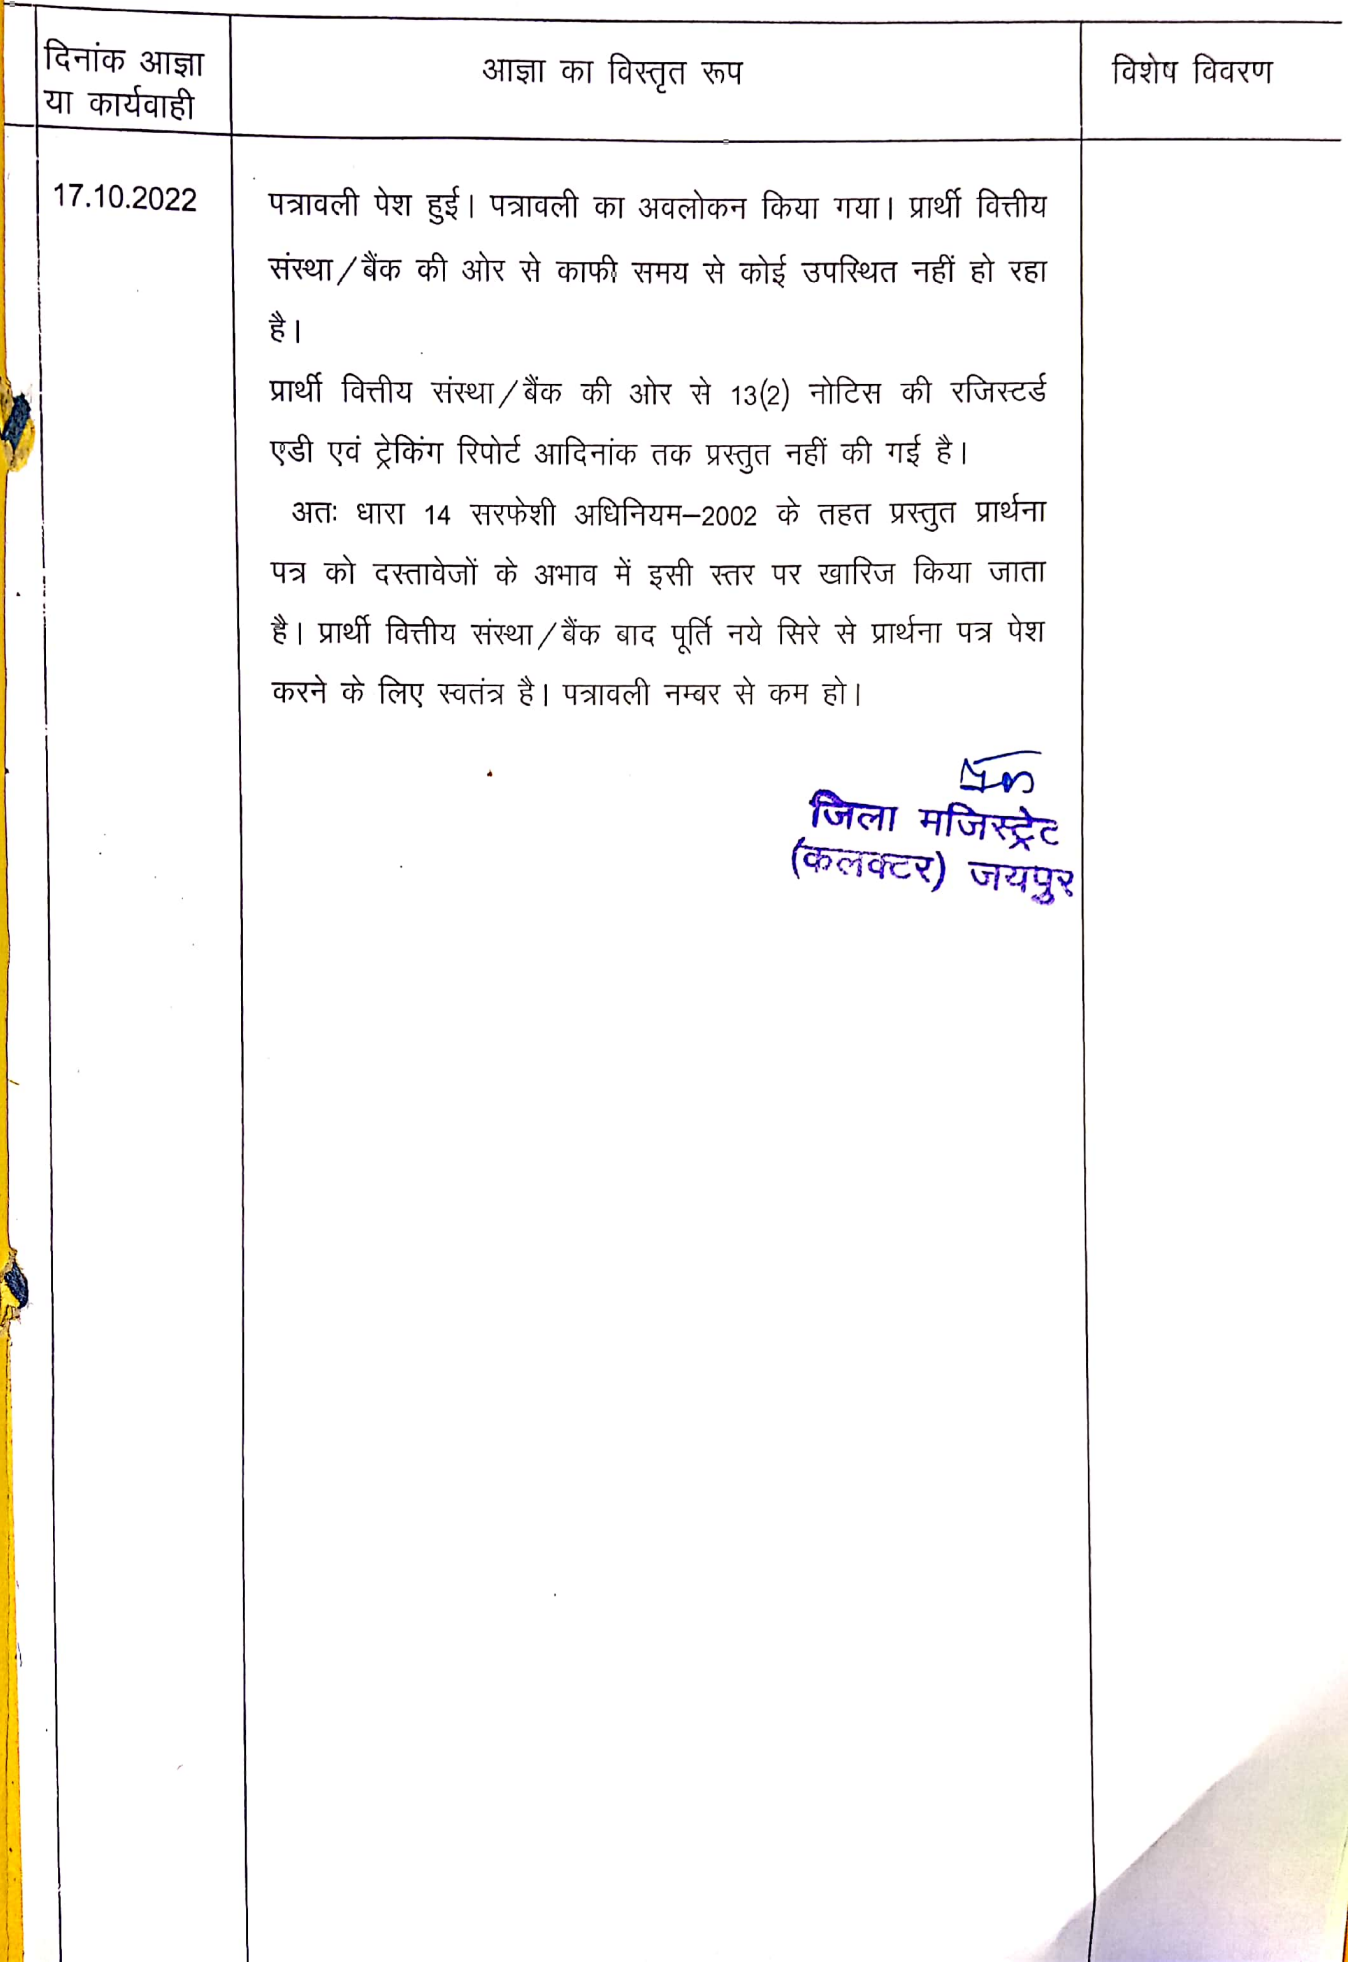 दिनांक आज्ञा
या कार्यवाही
आज्ञा का विस्तृत रूप
विशेष विवरण
17.10.2022
पत्रावली पेश हुई। पत्रावली का अवलोकन किया गया। प्रार्थी वित्तीय
संस्था/बैंक की ओर से काफी समय से कोई उपस्थित नहीं हो रहा
है।
प्रार्थी वित्तीय संस्था/बैंक की ओर से 13(2) नोटिस की रजिस्टर्ड
एडी एवं ट्रेकिंग रिपोर्ट आदिनांक तक प्रस्तुत नहीं की गई है।
अतः धारा 14 सरफेशी अधिनियम–2002 के तहत प्रस्तुत प्रार्थना
पत्र को दस्तावेजों के अभाव में इसी स्तर पर खारिज किया जाता
है। प्रार्थी वित्तीय संस्था/बैंक बाद पूर्ति नये सिरे से प्रार्थना पत्र पेश
करने के लिए स्वतंत्र है। पत्रावली नम्बर से कम हो।
जिला मजिस्ट्रेट
(कलक्टर) जयपुर